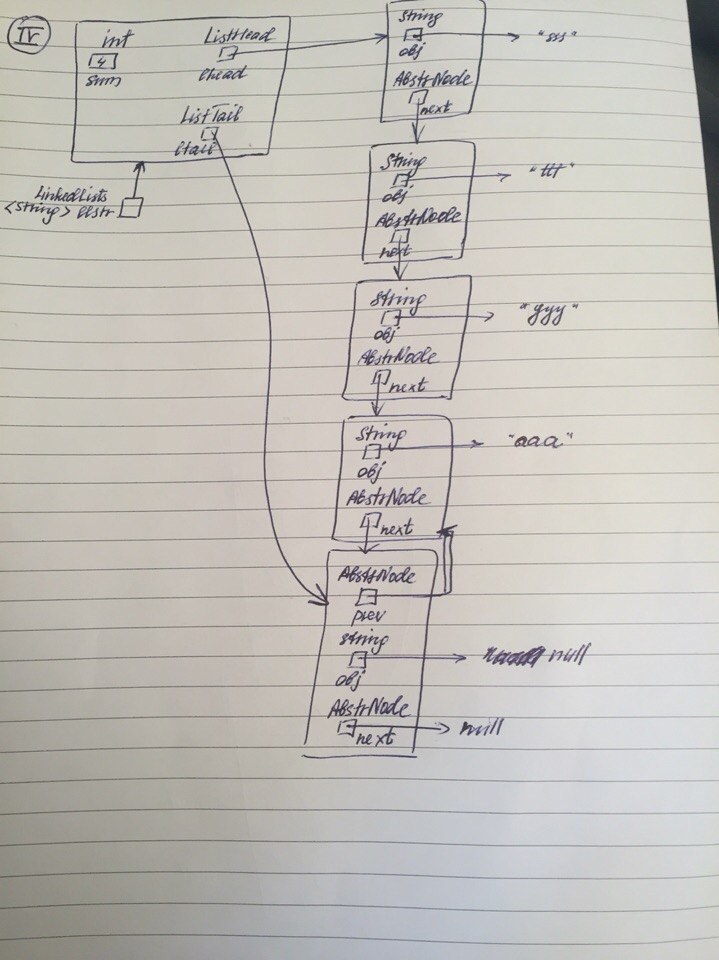 IV
int
4
sum
ListHead
lhead
ListTail
ltail
LinkedLists
<String> llstr
String
obj
"sss"
AbstrNode
next
String
obj
"ttt"
AbstrNode
next
String
obj
"yyy"
AbstrNode
next
String
obj
"aaa"
AbstrNode
next
AbstrNode
prev
String
obj
null
AbstrNode
next
null